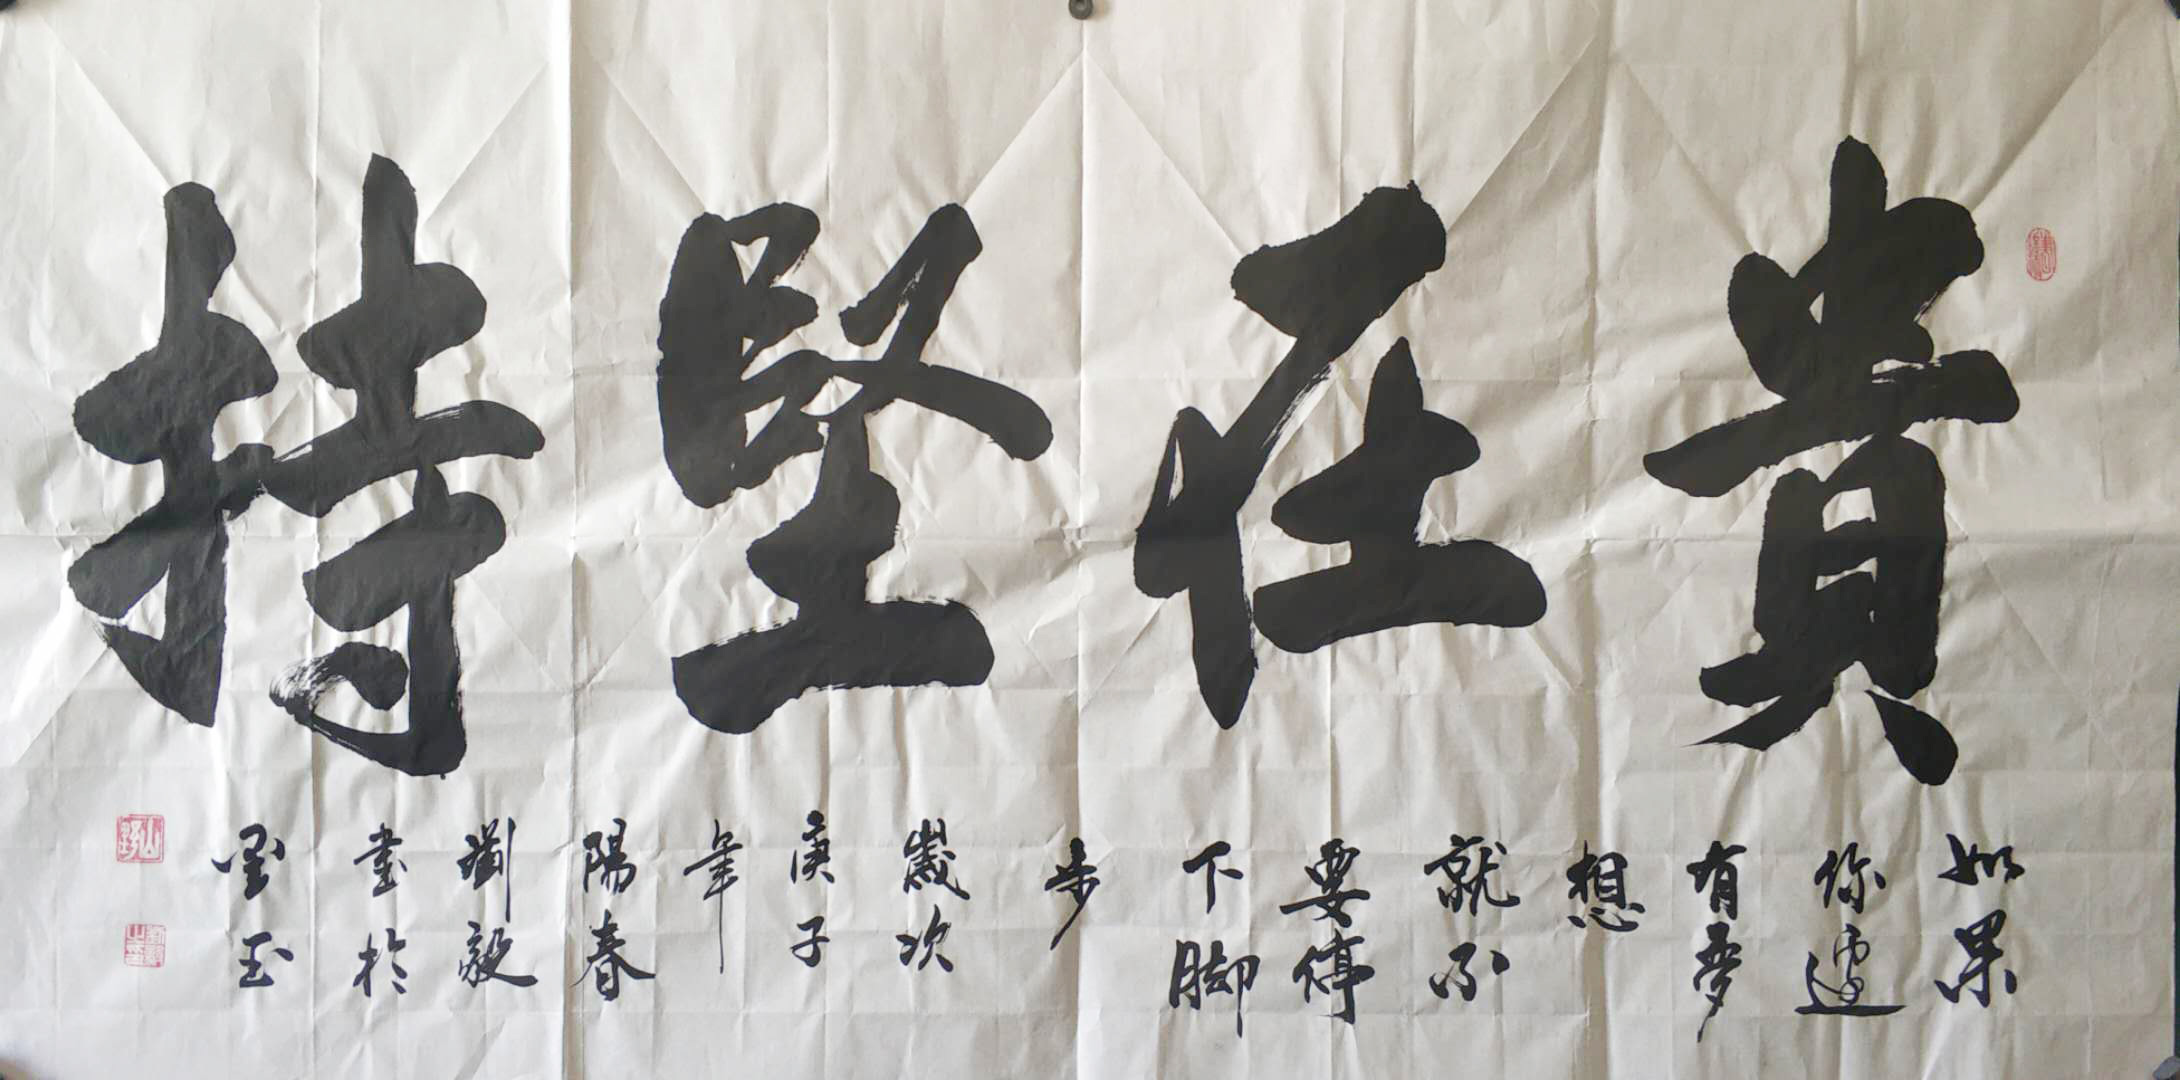 貴在堅持
如果
你邊
有夢
想
就不
要停
下脚
步
歲次
庚子
年
陽春
劉毅
書於
墨玉
山野